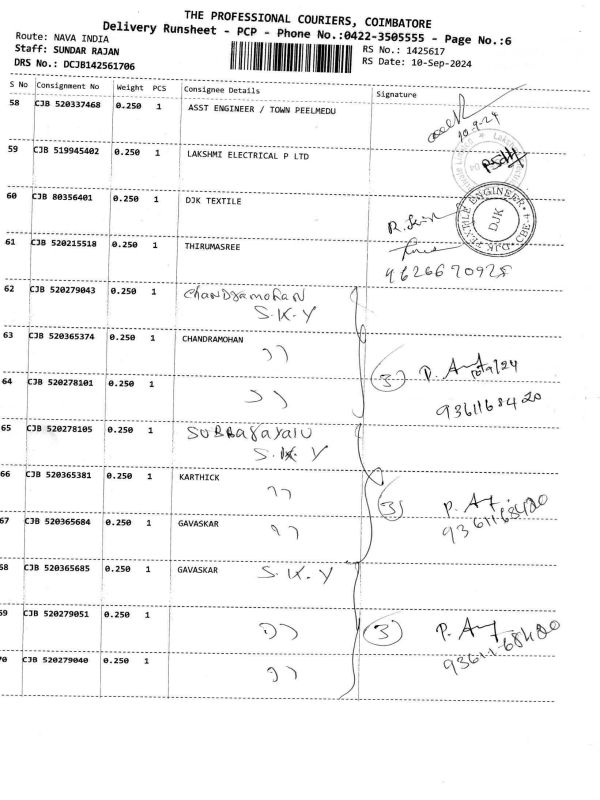 THE PROFESSIONAL COURIERS, COIMBATORE
Delivery Runsheet - PCP - Phone No.:0422-3505555 - Page No.:6
Route: NAVA INDIA
RS No.: 1425617
Staff: SUNDAR RAJAN
RS Date: 10-Sep-2024
DRS No.: DCJB142561706
S No Consignment No Weight PCS Consignee Details Signature
58 CJB 520337468 0.250 1 ASST ENGINEER / TOWN PEELMEDU
10.9.24
59 CJB 519945402 0.250 1 LAKSHMI ELECTRICAL P LTD
60 CJB 80356401 0.250 1 DJK TEXTILE
DJK TEXTILE ENGINEER CBE-4
DJK
61 CJB 520215518 0.250 1 THIRUMASREE
9626670925
62 CJB 520279043 0.250 1 Chandramohan
S.K.Y
63 CJB 520365374 0.250 1 CHANDRAMOHAN
" 
64 CJB 520278101 0.250 1 "
3 
9361168420
65 CJB 520278105 0.250 1 SUBBaRayalu
S.K.Y
66 CJB 520365381 0.250 1 KARTHICK
"
67 CJB 520365684 0.250 1 GAVASKAR
"
3
9361168420
68 CJB 520365685 0.250 1 GAVASKAR S.K.Y
69 CJB 520279051 0.250 1 "
3
9361168420
70 CJB 520279040 0.250 1 "